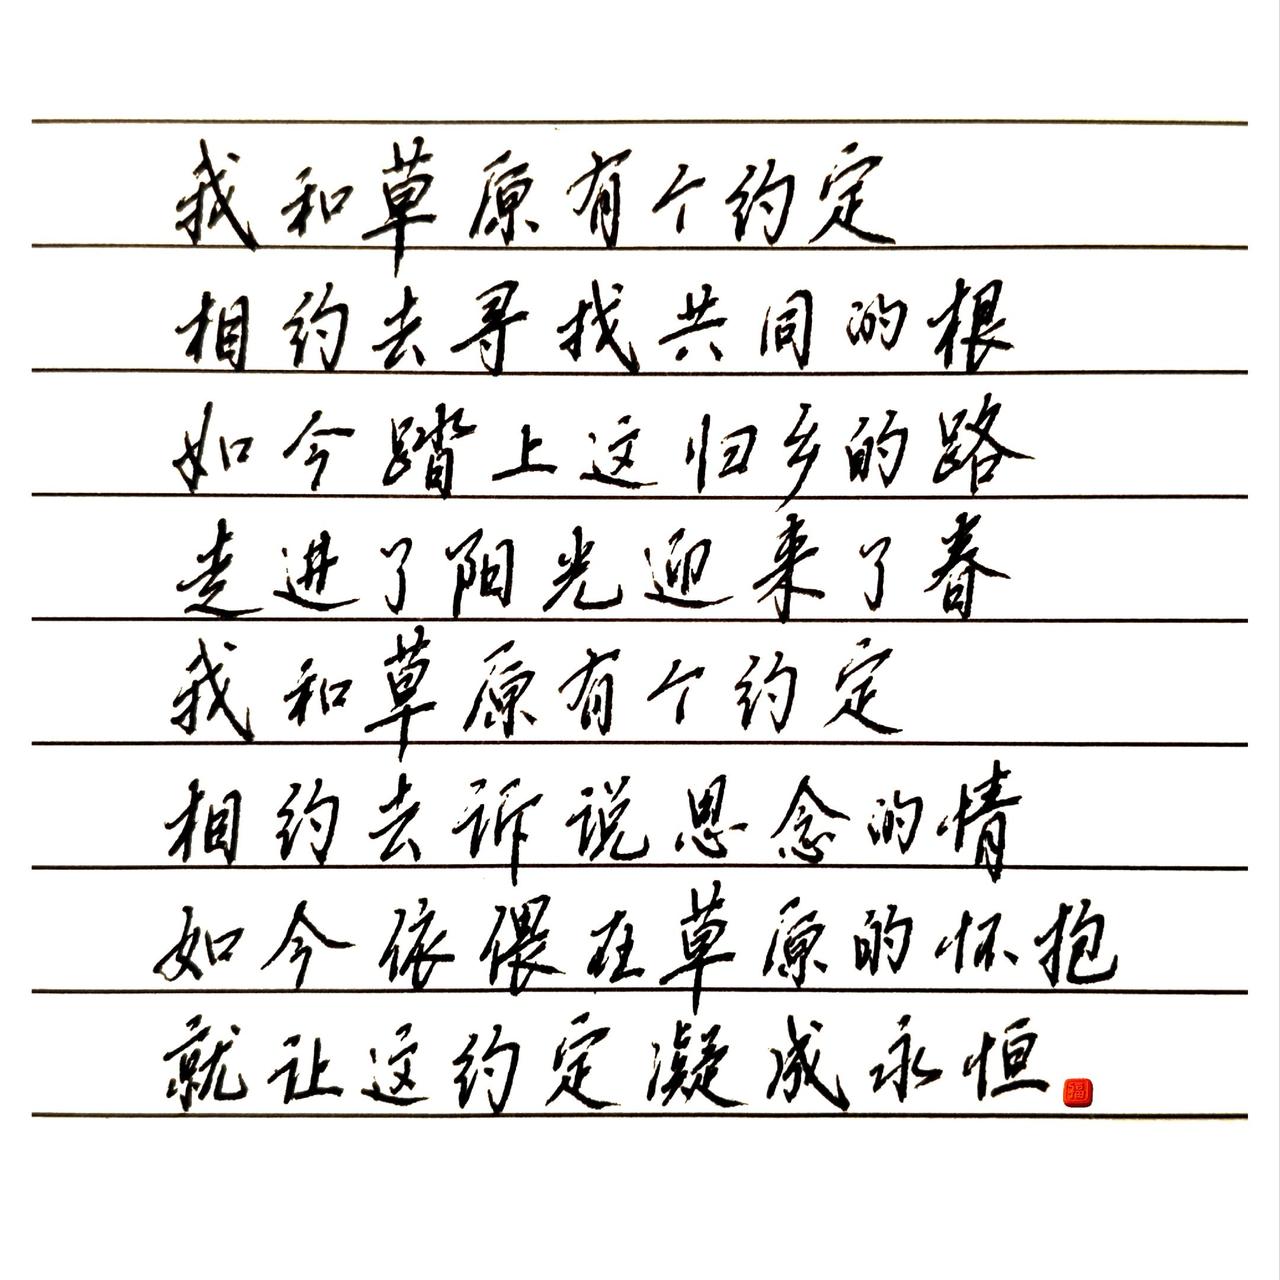 我和草原有个约定
相约去寻找共同的根
如今踏上这归乡的路
走进了阳光迎来了春
我和草原有个约定
相约去诉说思念的情
如今依偎在草原的怀抱
就让这约定凝成永恒
福